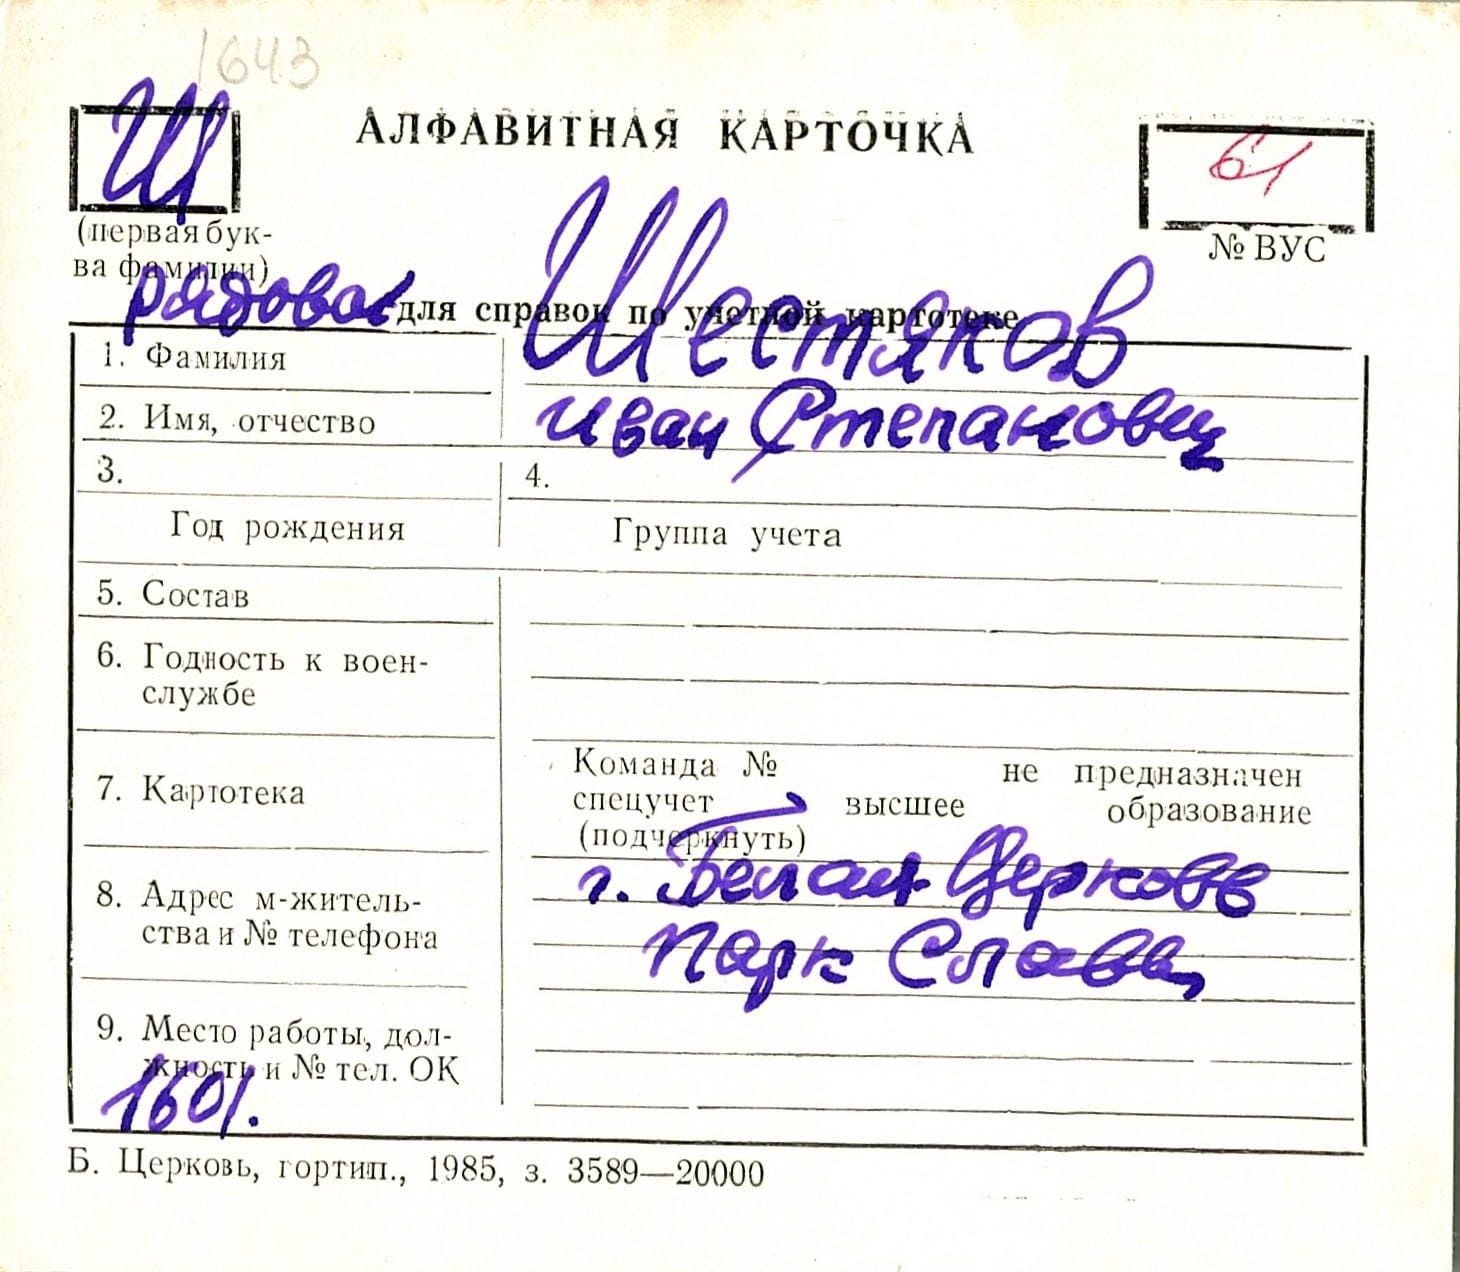 1643
Ш
АЛФАВИТНАЯ КАРТОЧКА
61
(первая бук-
ва фамилии)
№ ВУС
рядовой
для справок по учетной картотеке
1. Фамилия
Шестяков
2. Имя, отчество
Иван Степанович
3.
4.
Год рождения
Группа учета
5. Состав
6. Годность к воен-
службе
7. Картотека
Команда № не предназначен
спецучет высшее образование
(подчеркнуть)
8. Адрес м-житель-
ства и № телефона
г. Белая Церковь
парк Славы
9. Место работы, дол-
жность и № тел. ОК
1601.
Б. Церковь, гортип., 1985, з. 3589—20000